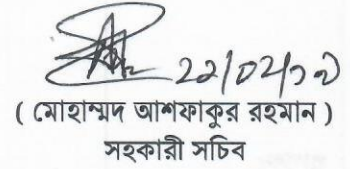 ২২/০২/১৩
( মোহাম্মদ আশফাকুর রহমান )
সহকারী সচিব